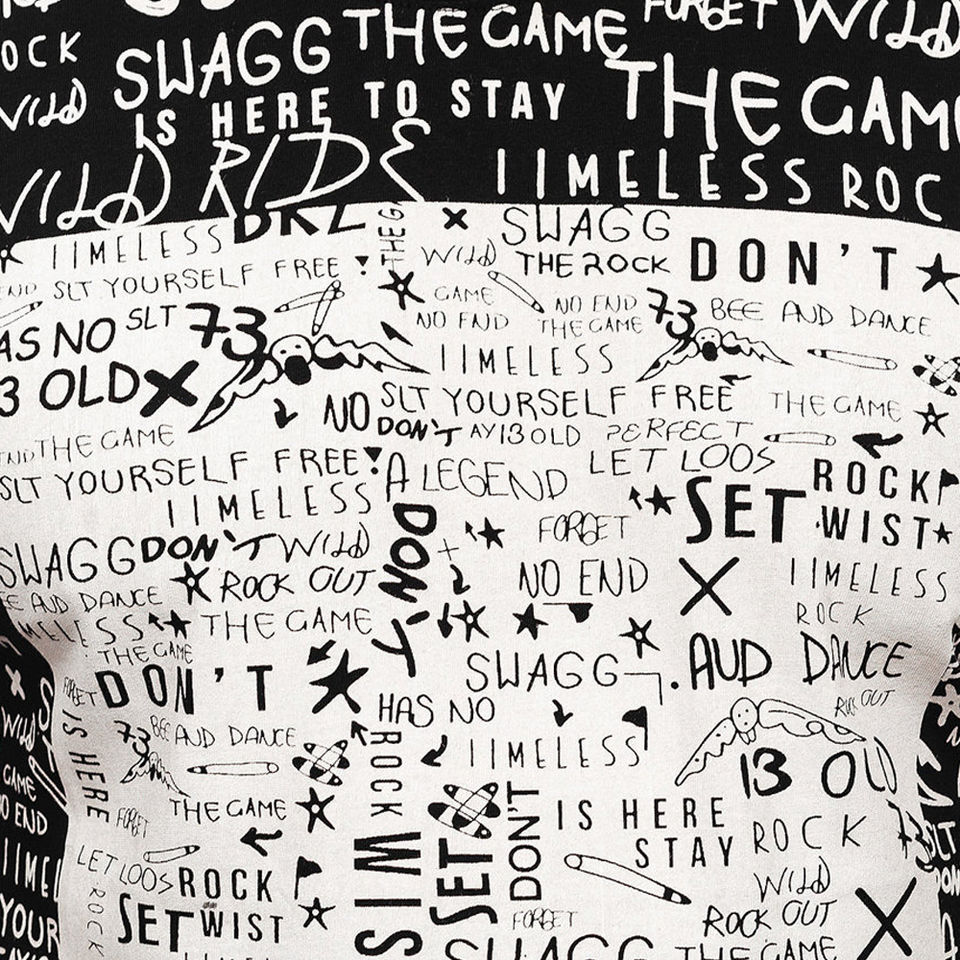 FORGET WILD
OCK SWAGG THE GAME
WILD IS HERE TO STAY THE GAM
WILD RIDE IIMELESS ROC
IIMELESS DKZ THE G SWAGG
WILD THE ROCK DON'T
END SLT YOURSELF FREE
GAME NO END 73 BEE AND DANCE
AS NO SLT 73 NO END THE GAME
3 OLD IIMELESS
NO SLT YOURSELF FREE THE GAME
END THE GAME DON'T AY13OLD PERFECT
SLT YOURSELF FREE A LEGEND LET LOOS ROCK
IIMELESS DON'T FORGET SET WIST
SWAGG DON'T WILD
E AUD DANCE ROCK OUT NO END IIMELESS
MELESS THE GAME ROCK
THE GAME SWAGG AUD DANCE
FORGET DON'T HAS NO OUT
IS HERE 73 BEE AND DANCE ROCK IIMELESS 13 OLD
THE GAME
FORGET DON'T IS HERE
STAY ROCK
LET LOOS ROCK WIS SET WILD
ROCK SET WIST FORGET ROCK OUT
SWAGG THE GAME
WILD
GAME
NO END
IIMEL
YOUR
SLT
DON